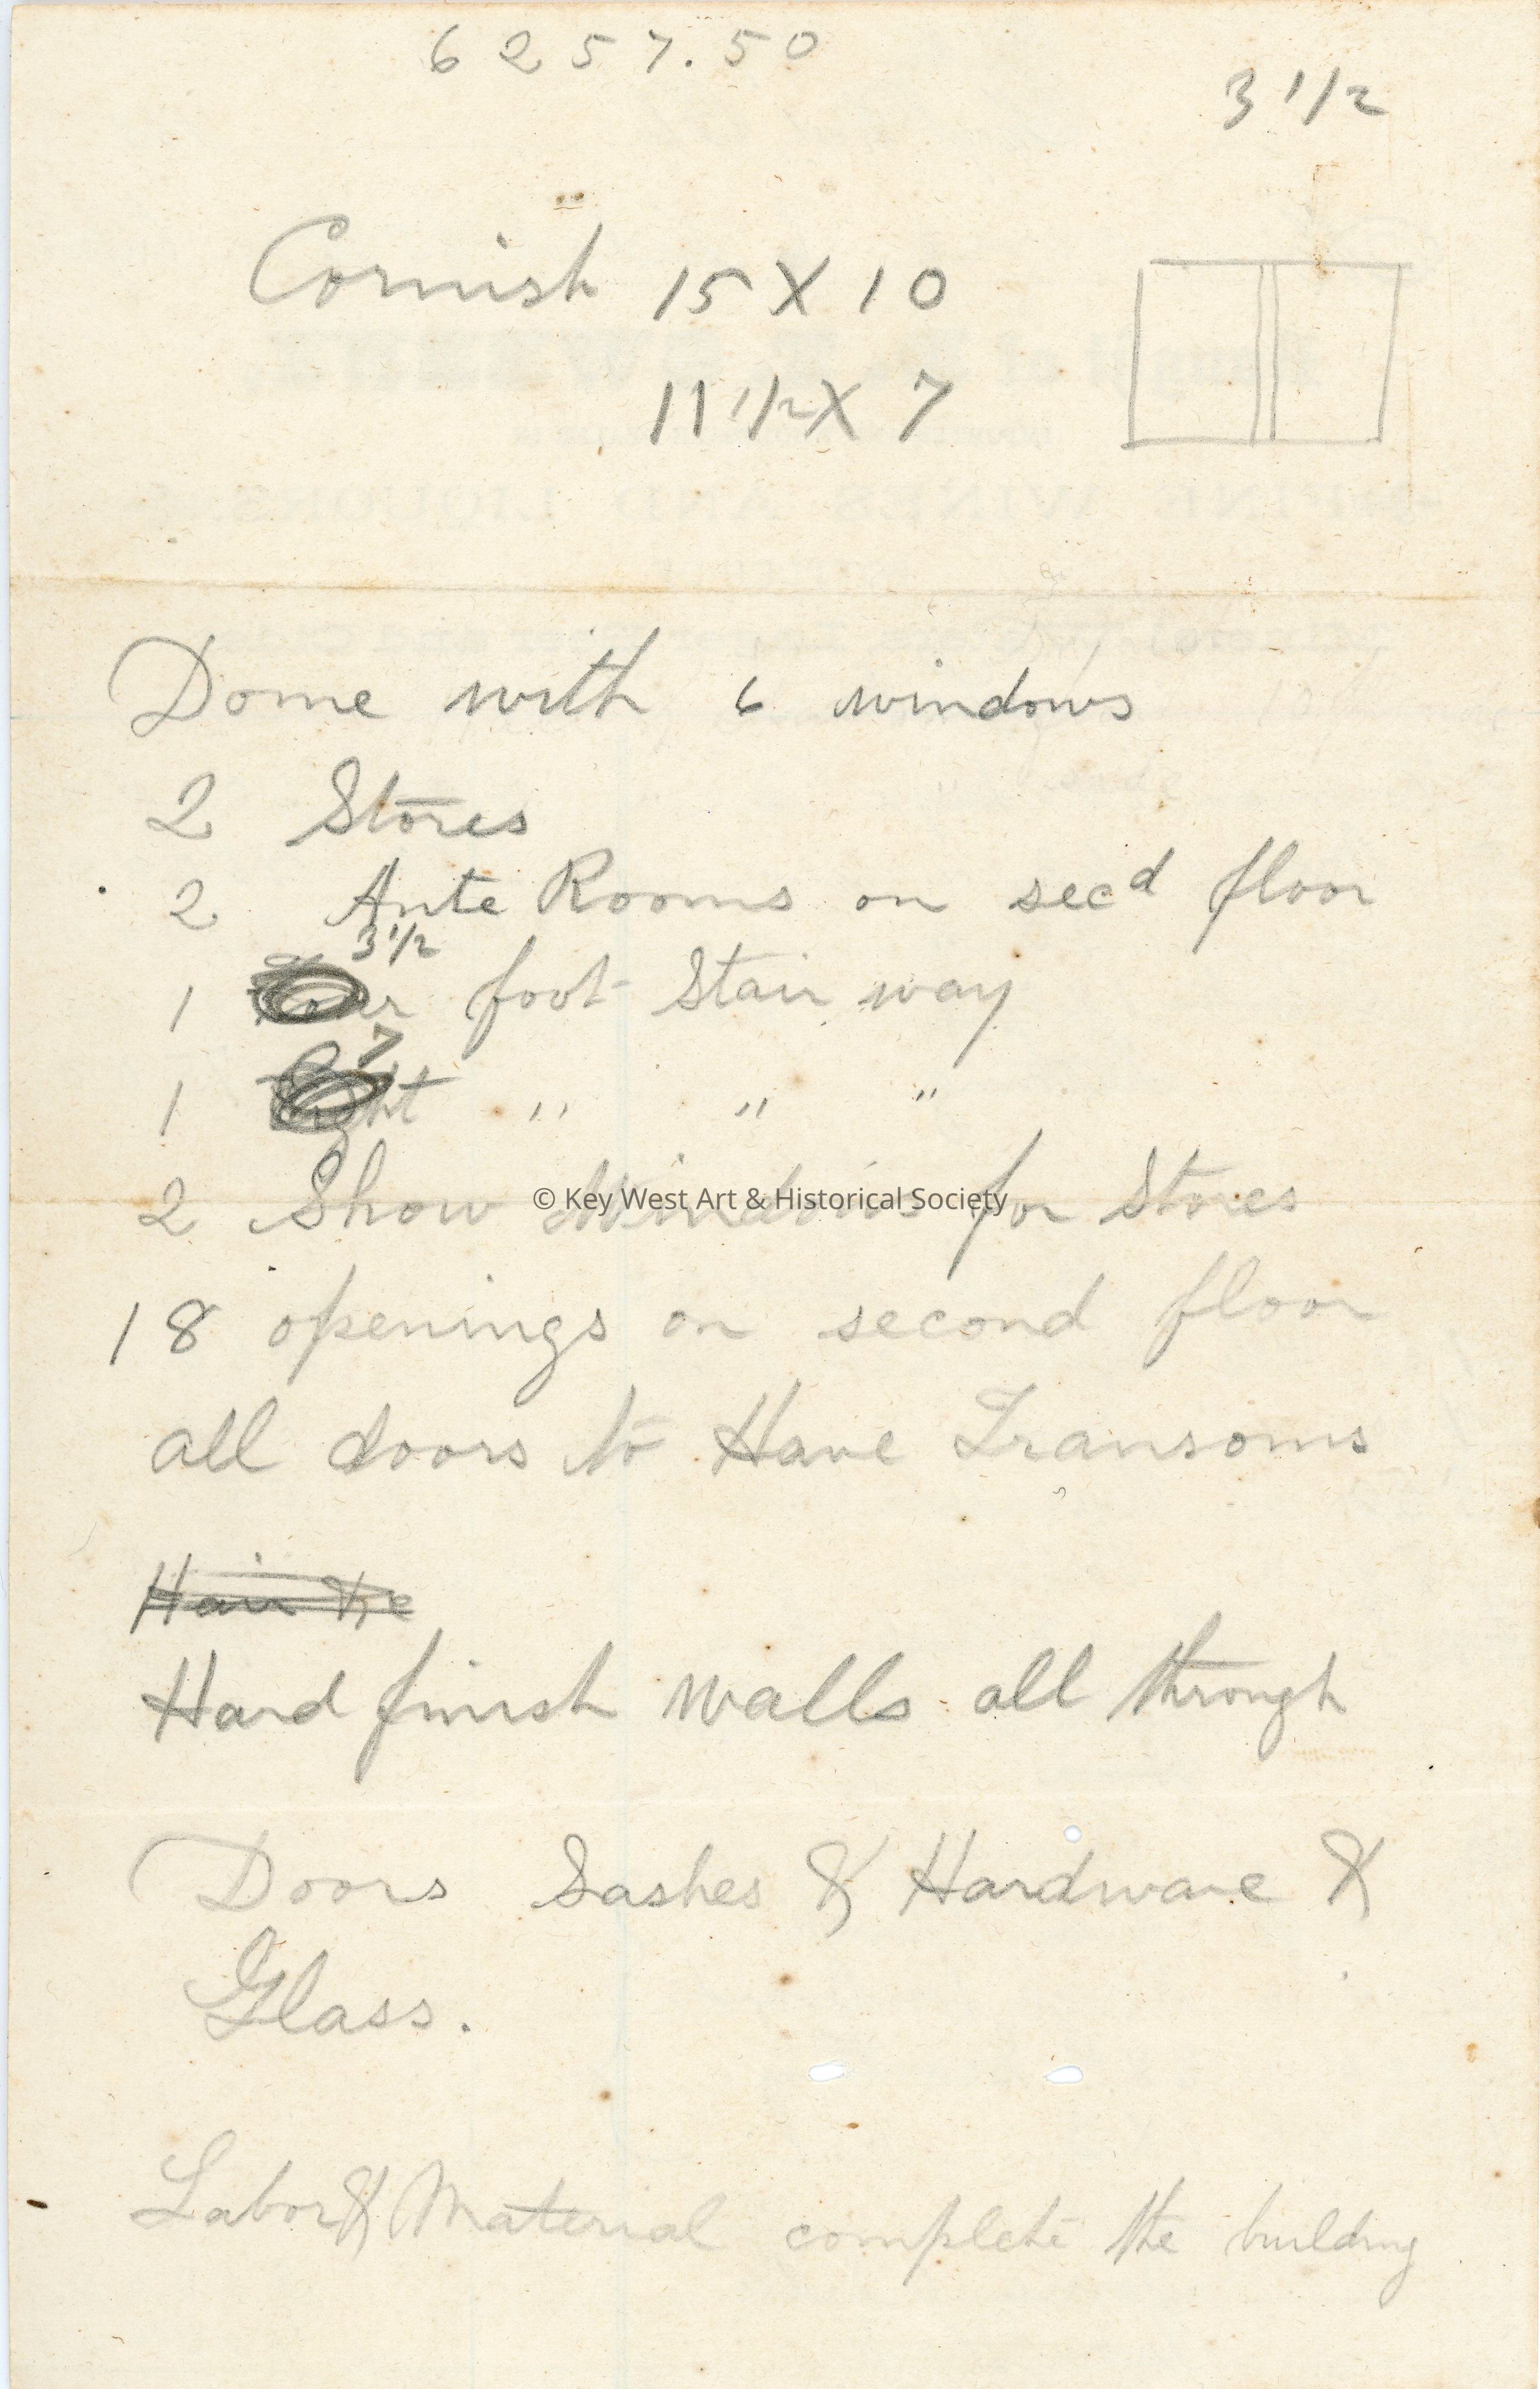 6257.50
3 1/2
Cornish 15 X 10
11 1/2 X 7
Dome with 6 windows
2 Stores
2 Ante Rooms on secd floor
3 1/2
1 Four foot Stair way
7
1 Eight " " "
2 Show Windows for Stores
© Key West Art & Historical Society
18 openings on second floor
all doors to Have Transoms
Hard finish walls all through
Doors Sashes & Hardware &
Glass.
Labor & Material complete the building